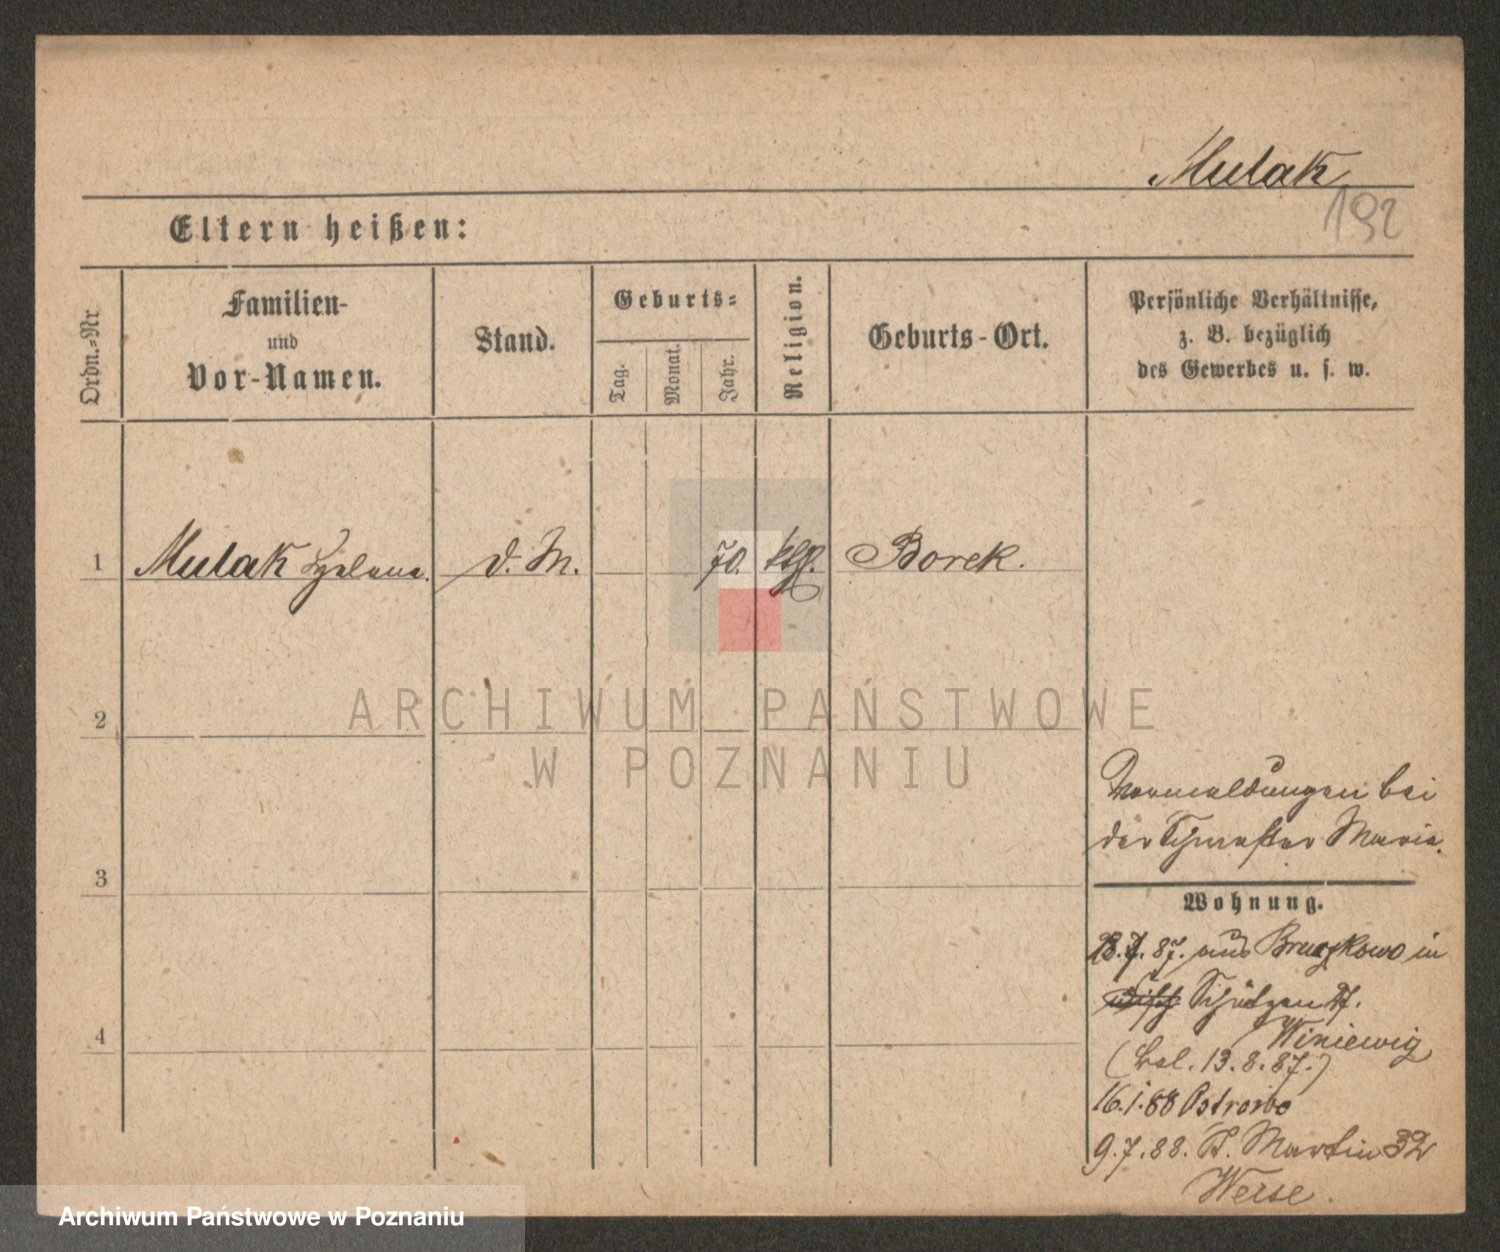 Mulak
192
Eltern heißen:
Ordn.-Nr.
Familien-
und
Vor-Namen.
Stand.
Geburts-
Tag.
Monat.
Jahr.
Religion.
Geburts-Ort.
Persönliche Verhältnisse,
z. B. bezüglich
des Gewerbes u. s. w.
1 Mulak Helena. d. M. 70. kth. Borek.
2
3
4
Vormeldungen bei
der Schwester Maria.
Wohnung.
87. aus Bruczkowo in
Schützen
Winiewig
13.8.87.)
16.1.88 Ostrowo
9.7.88. St. Martin 32
Weese.
ARCHIWUM PAŃSTWOWE
W POZNANIU
Archiwum Państwowe w Poznaniu